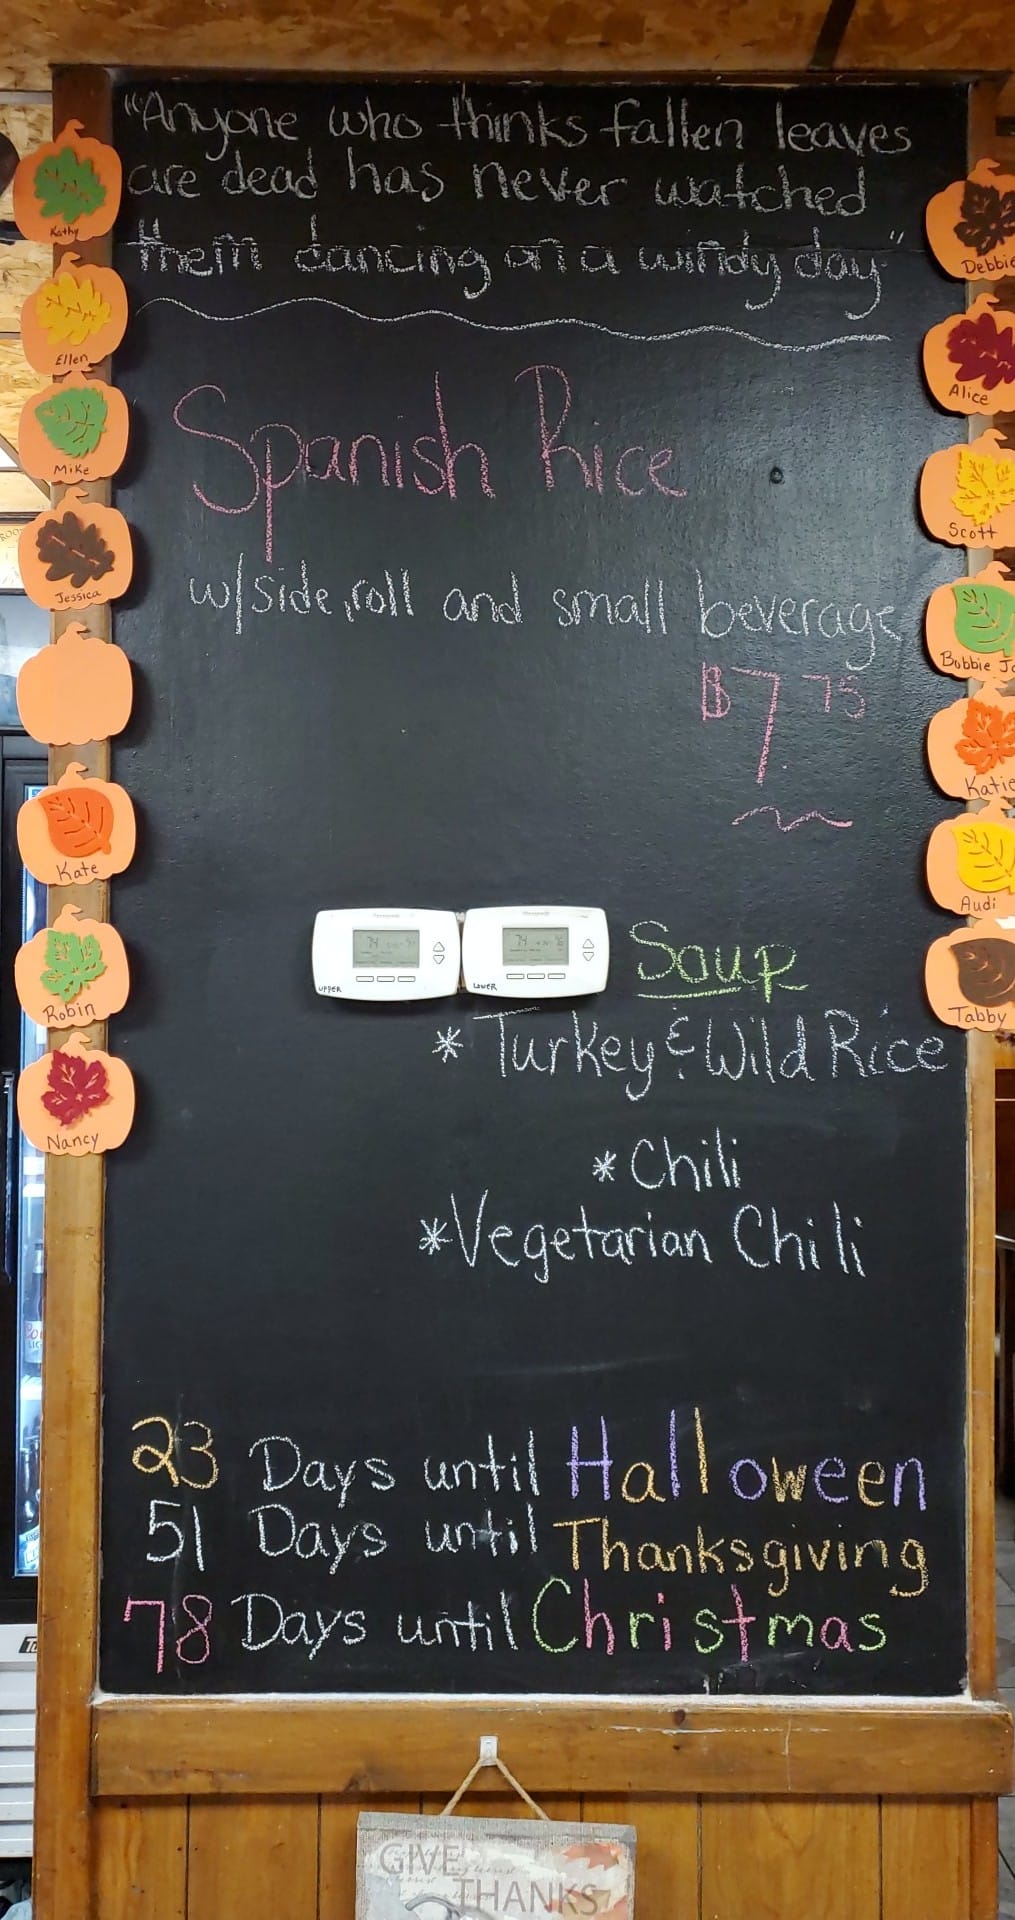 "Anyone who thinks fallen leaves
are dead has never watched
them dancing on a windy day"
Spanish Rice
w/side, roll and small beverage
$7.75
UPPER
LOWER
74
74
Soup
* Turkey & Wild Rice
* Chili
* Vegetarian Chili
23 Days until Halloween
51 Days until Thanksgiving
78 Days until Christmas
Kathy
Ellen
Mike
Jessica
Kate
Robin
Nancy
Debbie
Alice
Scott
Bobbie Jo
Katie
Audi
Tabby
GIVE
THANKS